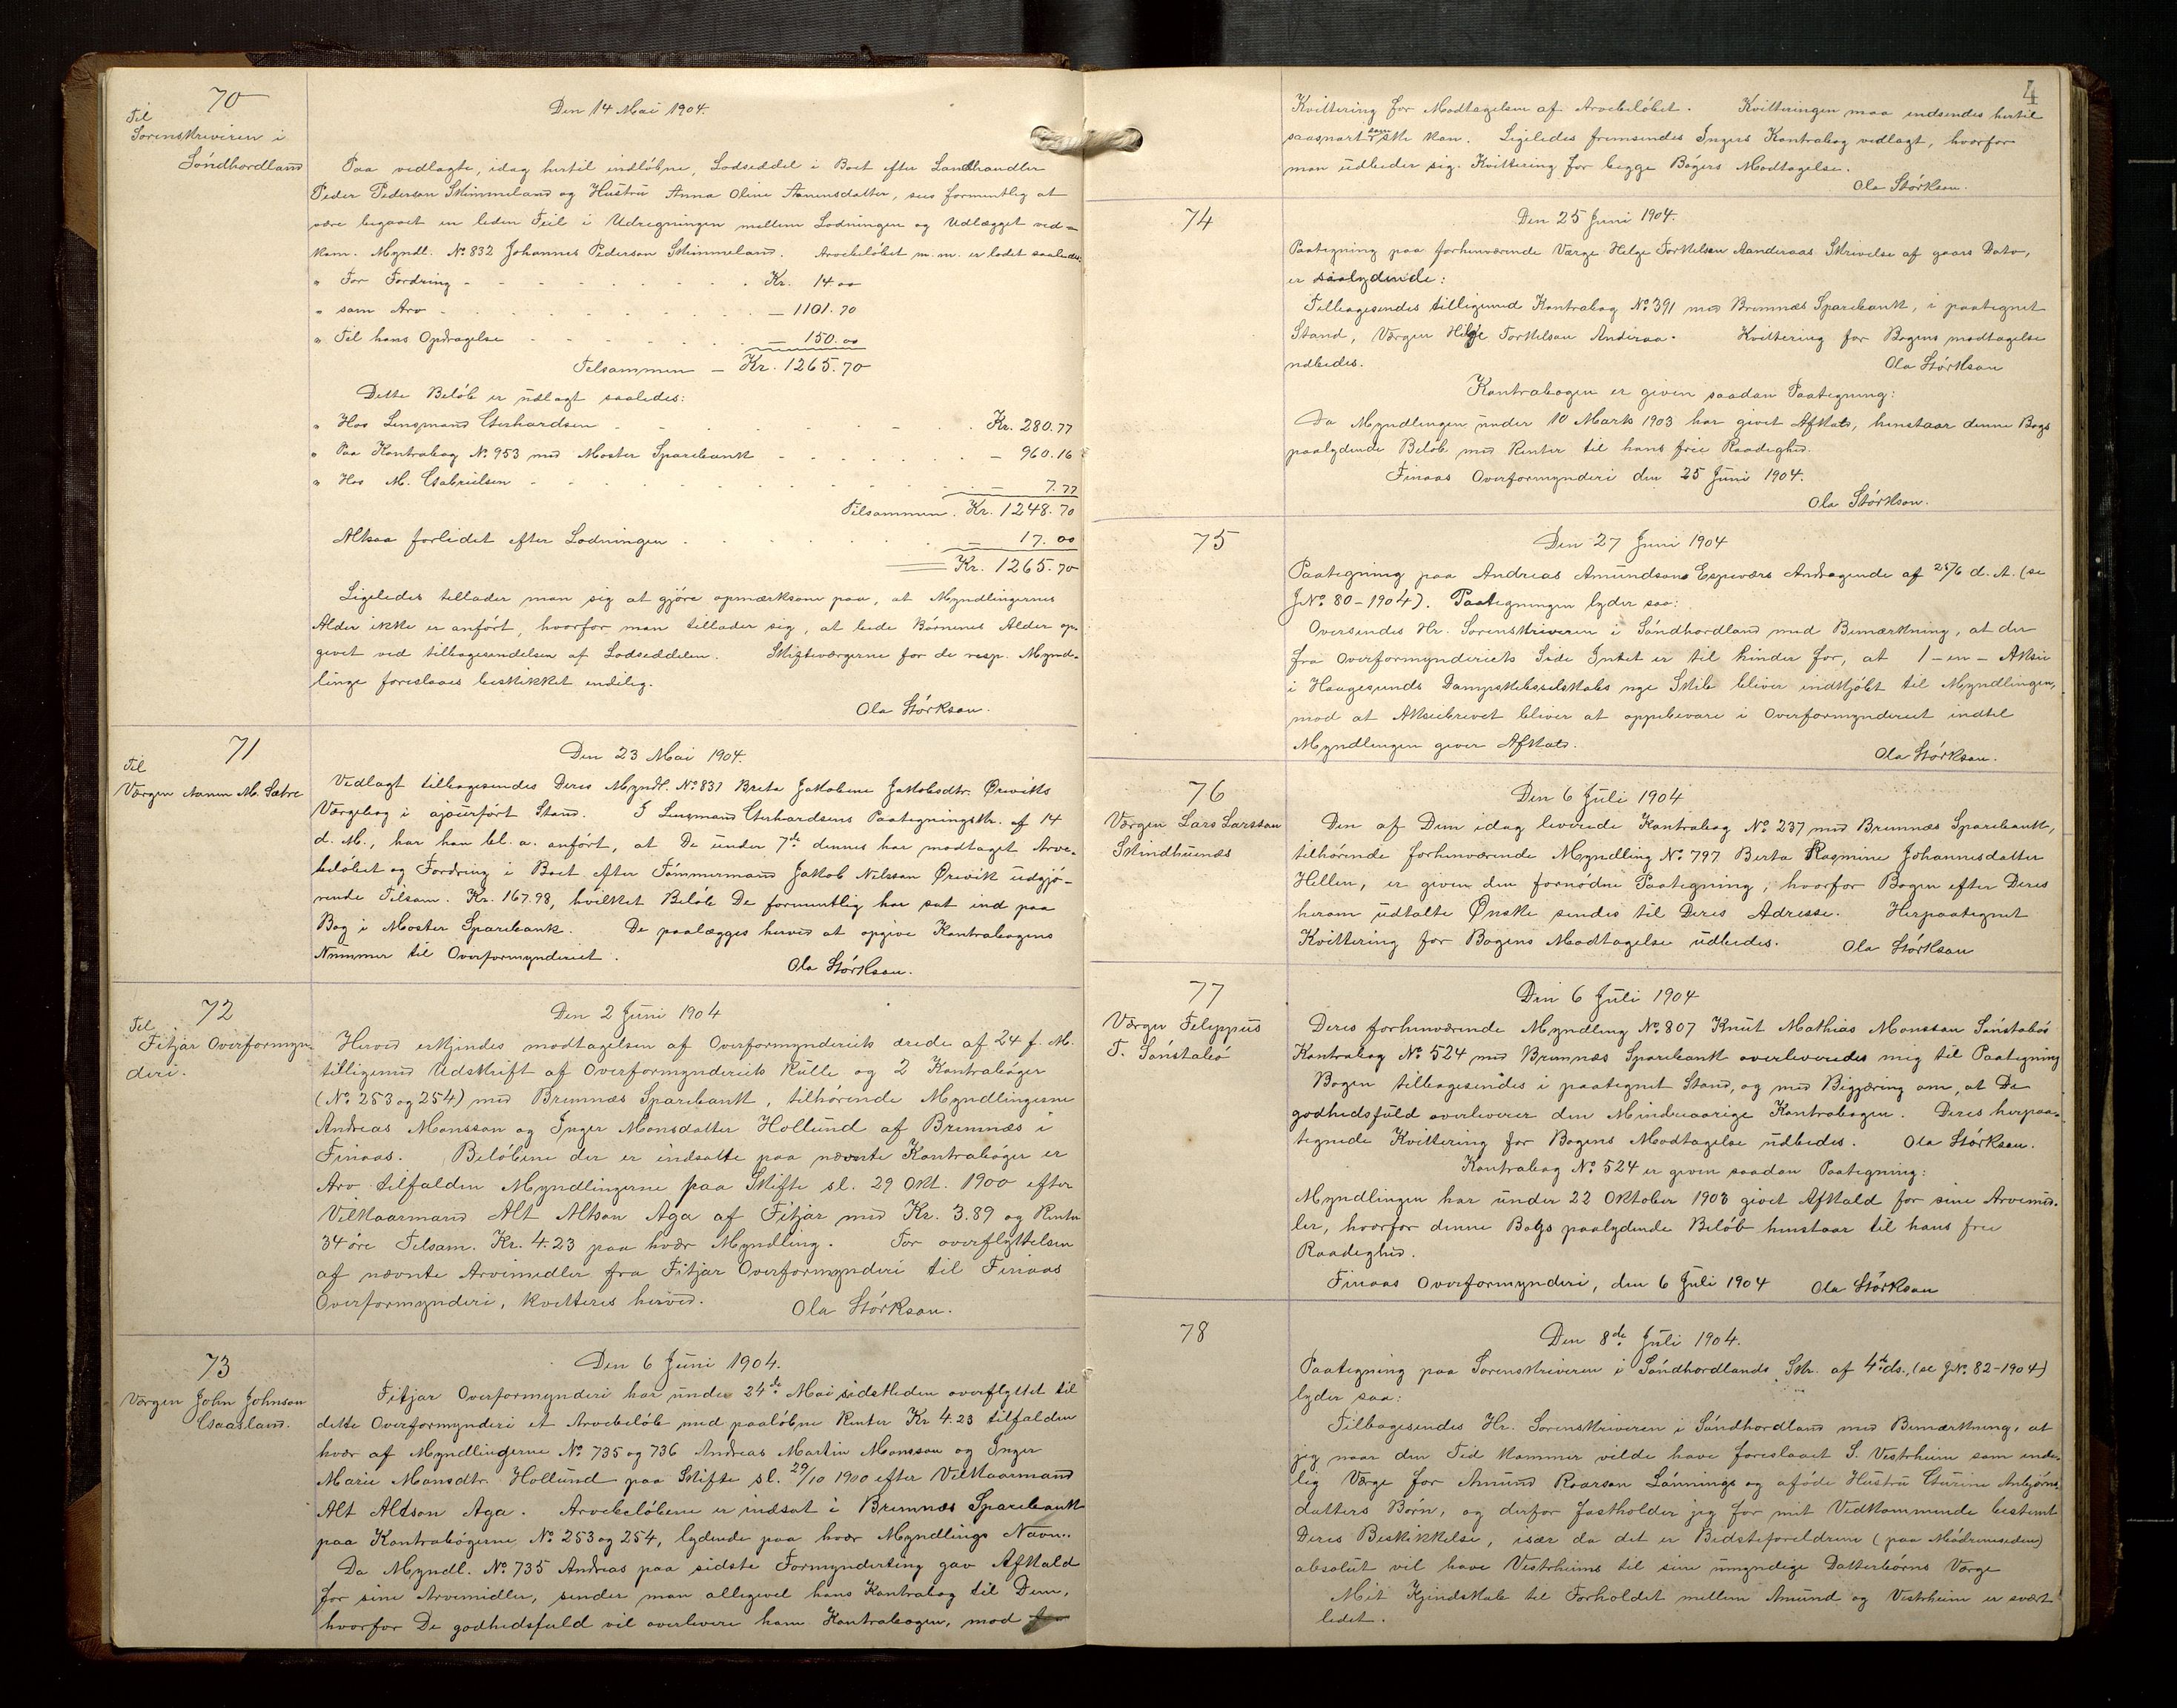 70
Til
Sorenskriveren i
Söndhordland
Den 14 Mai 1904.
Paa vedlagte, idag hertil indløbne, Lodseddel i Boet efter Landhandler
Peder Pederson Skimmeland og Hustru Anna Oline Aamundsdatter, sees formentlig at
være begaaet en liden Feil i Udregningen mellem Lodningen og Udlægget ved-
kom. Myndl. No 832 Johannes Pederson Skimmeland. Arvebeløbet m.m. er lodet saaledes:
" For Fordring - Kr. 14.00
" som Arv - — 1101.70
" Til hans Opdragelse - — 150.00
Tilsammen — Kr. 1265.70
Dette Beløb er udlagt saaledes:
" Hos Lensmand Gerhardsen - Kr. 280.77
" Paa Kontrabog No 953 med Moster Sparebank - — 960.16
" Hos M. Gabrielsen - — 7.77
Tilsammen. Kr. 1248.70
Altsaa forlidet efter Lodningen - — 17.00
Kr. 1265.70
Ligeledes tillader man sig at gjöre opmærksom paa, at Myndlingernes
Alder ikke er anført, hvorfor man tillader sig, at bede Børnenes Alder op-
givet ved tilbagesendelsen af Lodseddelen. Skifteværgerne for de resp. Mynd-
linge foreslaaes beskikket endelig.
Ola Störkson.
71
Til
Værgen Aamun M. Sætre
Den 23 Mai 1904.
Vedlagt tilbagesendes Deres Myndl. No 831 Brita Jakobine Jakobsdtr. Øreviks
Værgebog i ajourført Stand. I Lensmand Gerhardsens Paategningskr. af 14
d. M., har han bl. a. anført, at De under 7de dennes har modtaget Arve-
beløbet og Fordring i Boet efter Tömmermand Jakob Nilsson Ørevik udgjö-
rende Tilsam. Kr. 167.98, hvilket Beløb De formentlig har sat ind paa
Bog i Moster Sparebank. De paalægges herved at opgive Kontrabogens
Nummer til Overformynderiet.
Ola Störkson.
72
Til
Fitjar Overformyn-
deri.
Den 2 Juni 1904
Herved erkjendes modtagelsen af Overformynderiets ærede af 24 f. M.
tilligemed Udskrift af Overformynderiets Rulle og 2 Kontrabøger
(No 253 og 254) med Bremnæs Sparebank, tilhørende Myndlingerne
Andreas Monsson og Inger Monsdatter Hollund af Bremnæs i
Finaas. Beløbene der er indsatte paa nævnte Kontrabøger er
Arv tilfalden Myndlingerne paa Skifte sl. 29 Okt. 1900 efter
Vilkaarmand Alt Altson Aga af Fitjar med Kr. 3.89 og Renter
34 öre Tilsam. Kr. 4.23 paa hvær Myndling. For overflyttelsen
af nævnte Arvemidler fra Fitjar Overformynderi til Finaas
Overformynderi, kvitteres herved.
Ola Störkson.
73
Værgen John Johnson
Gaasland.
Den 6 Juni 1904.
Fitjar Overformynderi har under 24de Mai sidstleden overflyttet til
dette Overformynderi et Arvebeløb med paaløbne Renter Kr 4.23 tilfalden
hvær af Myndlingerne No 735 og 736 Andreas Martin Monsson og Inger
Marie Monsdtr. Hollund paa Skifte sl. 29/10 1900 efter Vilkaarmand
Alt Altson Aga. Arvebeløbene er indsat i Bremnæs Sparebank
paa Kontrabøgerne No 253 og 254, lydende paa hvær Myndlings Navn.
Da Myndl. No 735 Andreas paa sidste Formynderting gav Afkald
for sine Arvemidler, sender man alligevel hans Kontrabog til Dem,
hvorfor De godhedsfuld vil overlevere ham Kontrabogen, mod
4
Kvittering for Modtagelsen af Arvebeløbet. Kvitteringen maa indsendes hertil
saasnart som ske kan. Ligeledes fremsendes Ingers Kontrabog vedlagt, hvorfor
man udbeder sig Kvittering for begge Bøgers Modtagelse.
Ola Störkson.
74
Den 25 Juni 1904.
Paategning paa forhenværende Værge Helge Torkelson Aanderaas Skrivelse af gaars Dato,
er saalydende:
Tilbagesendes tilligemed Kontrabog No 391 med Bremnæs Sparebank, i paategnet
Stand, Værgen Helge Torkelson Anderaa. Kvittering for Bogens modtagelse
udbedes.
Ola Störkson
Kontrabogen er given saadan Paategning:
Da Myndlingen under 10 Marts 1903 har givet Afkald, henstaar denne Bogs
paalydende Beløb med Renter til hans frie Raadighed.
Finaas Overformynderi den 25 Juni 1904.
Ola Störkson.
75
Den 27 Juni 1904
Paategning paa Andreas Amundsons Espeværs Andragende af 25/6 d. A. (se
JNo 80-1904). Paategningen lyder saa:
Oversendes Hr. Sorenskriveren i Söndhordland med Bemærkning, at der
fra Overformynderiets Side Intet er til hinder for, at 1 - en - Aksie
i Haugesunds Dampskibsselskabs nye Skib bliver indkjöbt til Myndlingen,
mod at Aksiebrevet bliver at oppebevare i Overformynderiet indtil
Myndlingen giver Afkald.
Ola Störkson.
76
Værgen Lars Larsson
Skindhuenæs
Den 6 Juli 1904
Den af Dem idag leverede Kontrabog No 237 med Bremnæs Sparebank,
tilhörende forhenværende Myndling No 797 Berta Rasmine Johannesdatter
Hellen, er given den fornödne Paategning, hvorfor Bogen efter Deres
herom udtalte Ønske sendes til Deres Adresse. Herpaategnet
Kvittering for Bogens Modtagelse udbedes.
Ola Störkson
77
Værgen Filippus
T. Sönstabö
Den 6 Juli 1904
Deres forhenværende Myndling No 807 Knut Mathias Monsson Sönstabös
Kontrabog No 524 med Bremnæs Sparebank overleveredes mig til Paategning
Bogen tilbagesendes i paategnet Stand, og med Begjæring om, at De
godhedsfuld overleverer den Mindreaarige Kontrabogen. Deres herpaa-
tegnede Kvittering for Bogens Modtagelse udbedes. Ola Störkson.
Kontrabog No 524 er given saadan Paategning:
Myndlingen har under 22 Oktober 1903 givet Afkald for sine Arvemid-
ler, hvorfor denne Bogs paalydende Beløb henstaar til hans frie
Raadighed.
Finaas Overformynderi, den 6 Juli 1904 Ola Störkson
78
Den 8de Juli 1904.
Paategning paa Sorenskriveren i Söndhordlands Skr. af 4de ds., (se JNo 82-1904)
lyder saa:
Tilbagesendes Hr. Sorenskriveren i Söndhordland med Bemærkning, at
jeg naar den Tid kommer vilde have foreslaaet S. Vestrheim som ende-
lig Værge for Amund Roarson Lönnings og afdøde Hustru Gurine Anbjörns-
datters Børn, og derfor fastholder jeg for mit Vedkommende bestemt
Deres Beskikkelse, især da det er Bedsteforeldrene (paa Mödrenesiden)
absolut vil have Vestrheim til sine umyndige Datterbørns Værge
Mit Kjendskab til Forholdet mellem Amund og Vestrheim er svært
lidet.